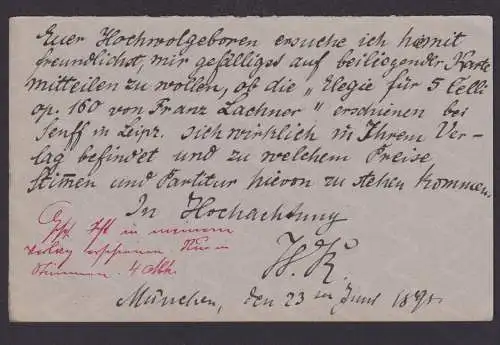 Euer Hochwolgeboren ersuche ich hiemit
freundlichst, mir gefälligst auf beiliegender Karte
mitteilen zu wollen, ob die „Elegie für 5 Celli
op. 160 von Franz Lachner" erschienen bei
Senff in Leipz. sich wirklich in Ihrem Ver-
lag befindet und zu welchem Preise,
Stimmen und Partitur hievon zu stehen kommen.
In Hochachtung
W. K.
ist in meinem
Verlag erschienen Nur in
Stimmen. 4 Mk.
München, den 23ten Juni 189